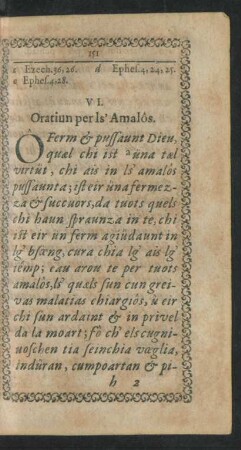 151
c Ezech. 36, 26. d Ephes. 4, 24, 25.
e Ephes. 4. 28.
VI.
Oratiun per ls' Amalôs.
O Ferm & pussaunt Dieu,
quæl chi ist ùna tæl
virtùt, chi ais in ls' amalôs
pussaunta; ist eir ùna fermez-
za & succuors, da tuots quels
chi haun spraunza in te, chi
ist eir ùn ferm agiùdaunt in
lg' bsœng, cura chia lg' ais lg'
temp; eau arou te per tuots
amalôs, ls' quæls sun cun grei-
vas malatias chiargiôs, ù eir
chi sun ardaint & in privel
da la moart; fô ch' els cugni-
uoschen tia seinchia vœglia,
indùran, cumpoartan & pi-
h 2